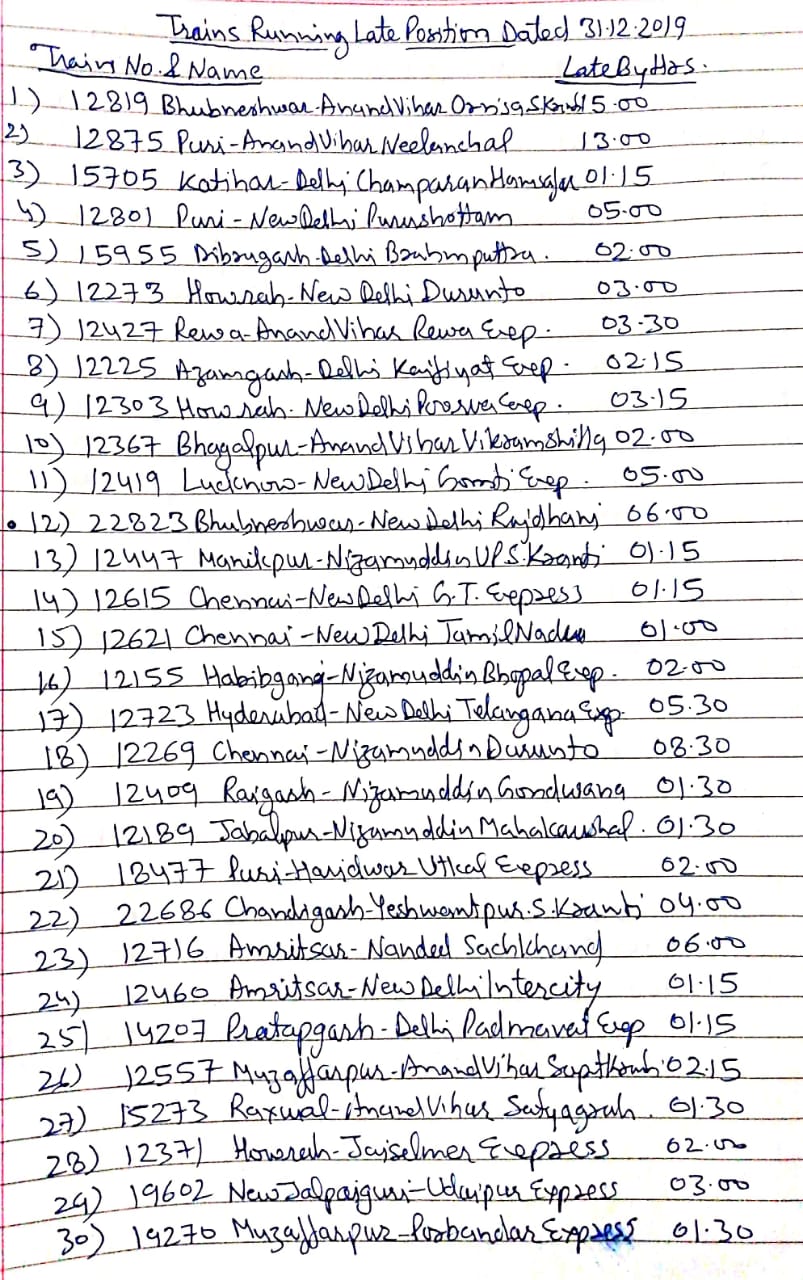 Trains Running Late Position Dated 31.12.2019
Train No. & Name Late By Hrs.
1) 12819 Bhubneshwar-Anand Vihar Orrisa S Kranti 5.00
2) 12875 Puri-Anand Vihar Neelanchal 13.00
3) 15705 Katihar-Delhi Champaran Hamsafar 01.15
4) 12801 Puri-New Delhi Purushottam 05.00
5) 15955 Dibrugarh-Delhi Brahmputtra. 02.00
6) 12273 Howrah-New Delhi Duranto 03.00
7) 12427 Rewa-Anand Vihar Rewa Exp. 03.30
8) 12225 Azamgarh-Delhi Kaifiyat Exp. 02.15
9) 12303 Howrah-New Delhi Poorva Exp. 03.15
10) 12367 Bhagalpur-Anand Vihar Vikramshilla 02.00
11) 12419 Lucknow-New Delhi Gomti Exp. 05.00
12) 22823 Bhubneshwar-New Delhi Rajdhani 06.00
13) 12447 Manikpur-Nizamuddin U.P.S. Kranti 01.15
14) 12615 Chennai-New Delhi G.T. Express 01.15
15) 12621 Chennai-New Delhi Tamil Nadu 01.00
16) 12155 Habibganj-Nizamuddin Bhopal Exp. 02.00
17) 12723 Hyderabad-New Delhi Telangana Exp. 05.30
18) 12269 Chennai-Nizamuddin Duranto 08.30
19) 12409 Raigarh-Nizamuddin Gondwana 01.30
20) 12189 Jabalpur-Nizamuddin Mahakaushal. 01.30
21) 18477 Puri-Haridwar Utkal Express 02.00
22) 22686 Chandigarh-Yeshwantpur.S.Kranti 04.00
23) 12716 Amritsar-Nanded Sachkhand 06.00
24) 12460 Amritsar-New Delhi Intercity 01.15
25) 14207 Pratapgarh-Delhi Padmavat Exp 01.15
26) 12557 Muzaffarpur-Anand Vihar Saptkranti 02.15
27) 15273 Raxual-Anand Vihar Satyagrah. 01.30
28) 12371 Howrah-Jaiselmer Express 02.00
29) 19602 New Jalpaiguri-Udaipur Express 03.00
30) 19270 Muzaffarpur-Porbandar Express 01.30